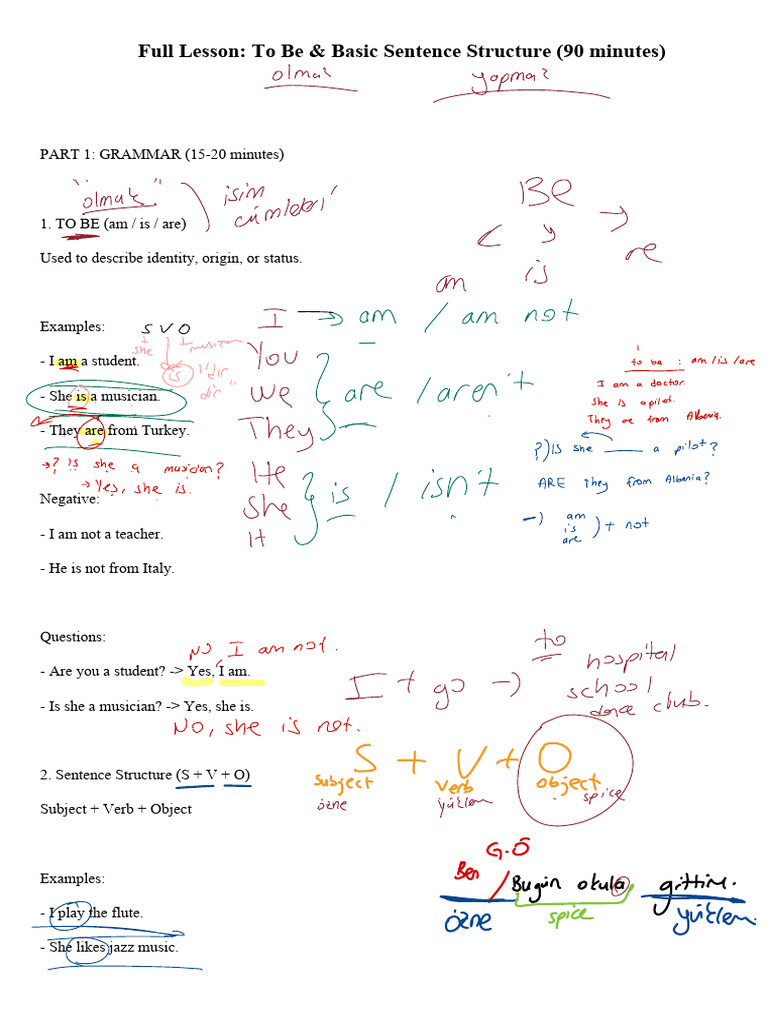 Full Lesson: To Be & Basic Sentence Structure (90 minutes)
olmak yapmak
PART 1: GRAMMAR (15-20 minutes)
"olmak" isim cümleleri
BE
1. TO BE (am / is / are)
Used to describe identity, origin, or status.
am is are
I → am / am not
You
We
They
are / aren't
He
She
It
is / isn't
Examples:
S V O
she is musician
"dır
dir"
- I am a student.
- She is a musician.
- They are from Turkey.
→ ? Is she a musician?
→ Yes, she is.
to be : am/is/are
I am a doctor.
She is a pilot.
They are from Albania.
?) IS she a pilot?
ARE They from Albania?
-) am
is
are
) + not
Negative:
- I am not a teacher.
- He is not from Italy.
Questions:
No, I am not.
- Are you a student? -> Yes, I am.
- Is she a musician? -> Yes, she is.
No, she is not.
I + go → to
hospital
school
dance club.
2. Sentence Structure (S + V + O)
S + V + O
Subject Verb object
özne yüklem spice
Subject + Verb + Object
Examples:
G.Ö
Ben / Bugün okula gittim.
özne spice yüklem
- I play the flute.
- She likes jazz music.